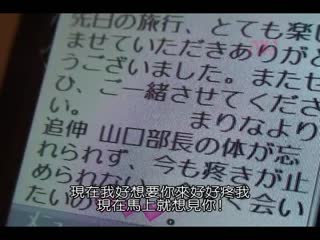 先日の旅行、とても楽し
ませていただきありがと
うございました。またぜ
ひ、ご一緒させてくださ
い。 まりなより
追伸 山口部長の体が忘
れられず、今も疼きが止
められない
く会い
たいの
現在我好想要你來好好疼我
現在馬上就想見你!